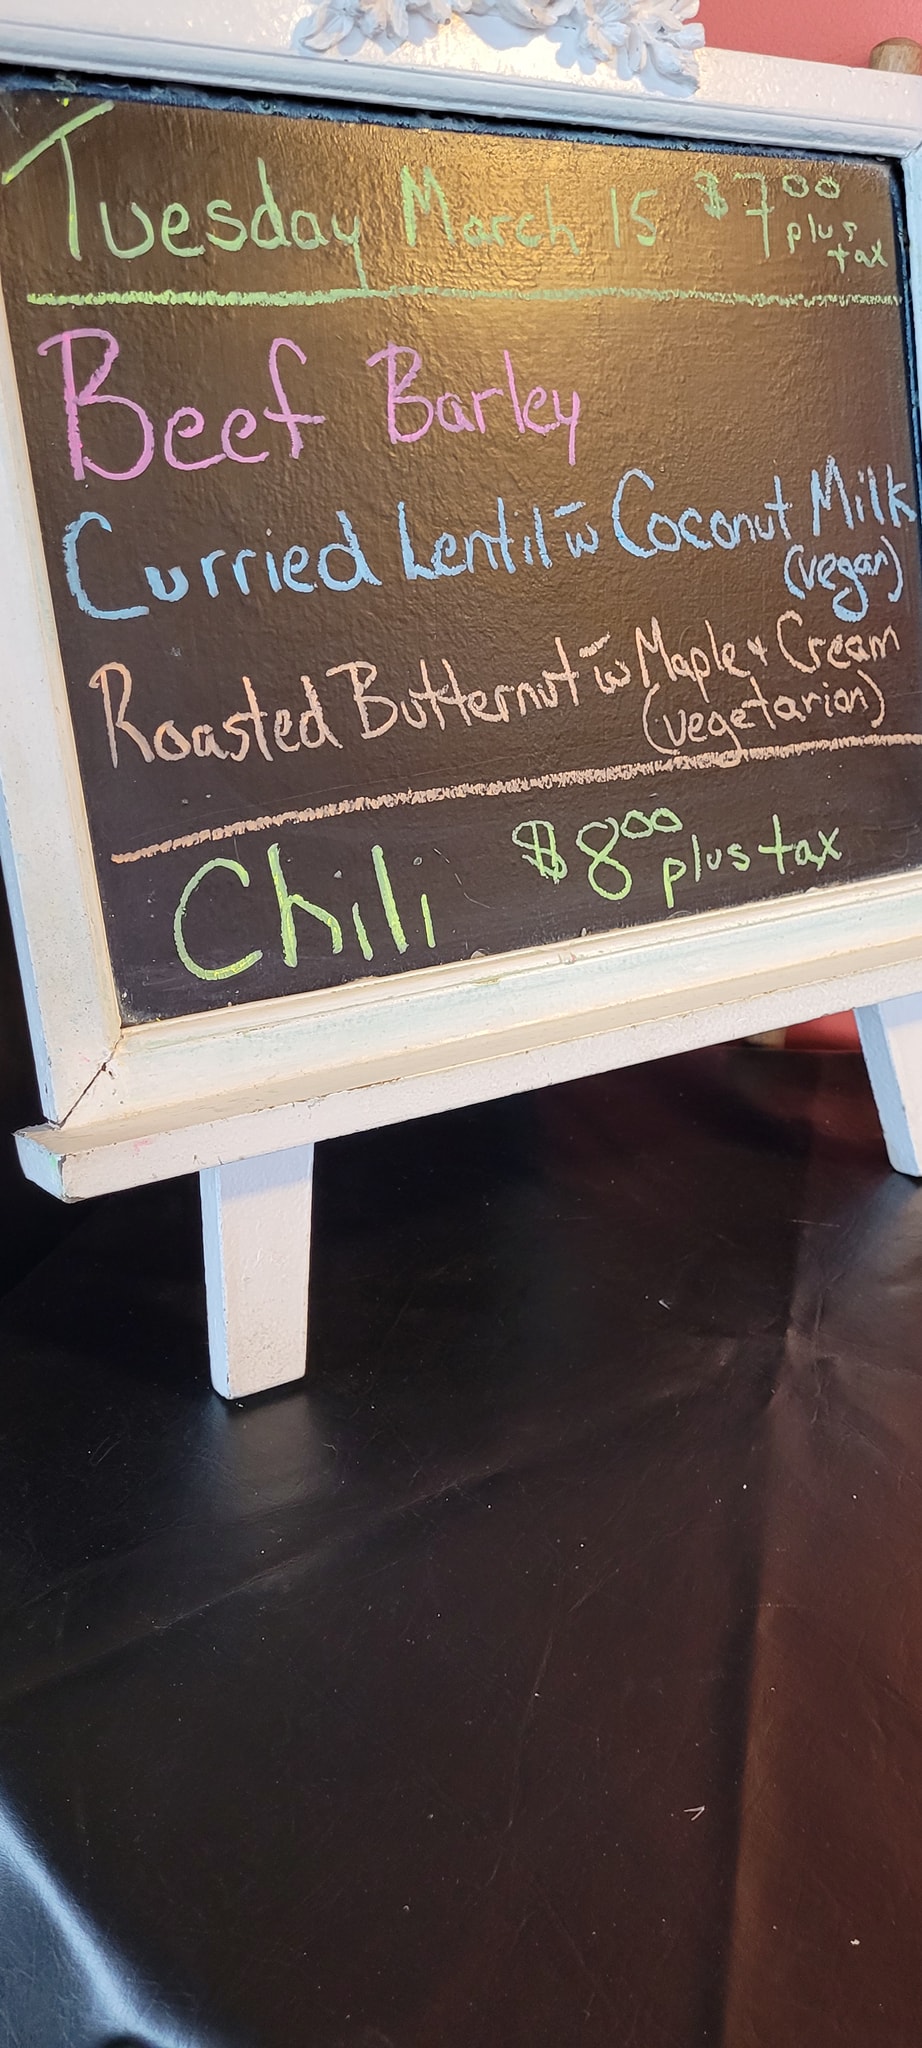 Tuesday March 15 $7.00
plus
tax
Beef Barley
Curried Lentil w̄ Coconut Milk
(vegan)
Roasted Butternut w̄ Maple + Cream
(vegetarian)
Chili $8.00 plus tax